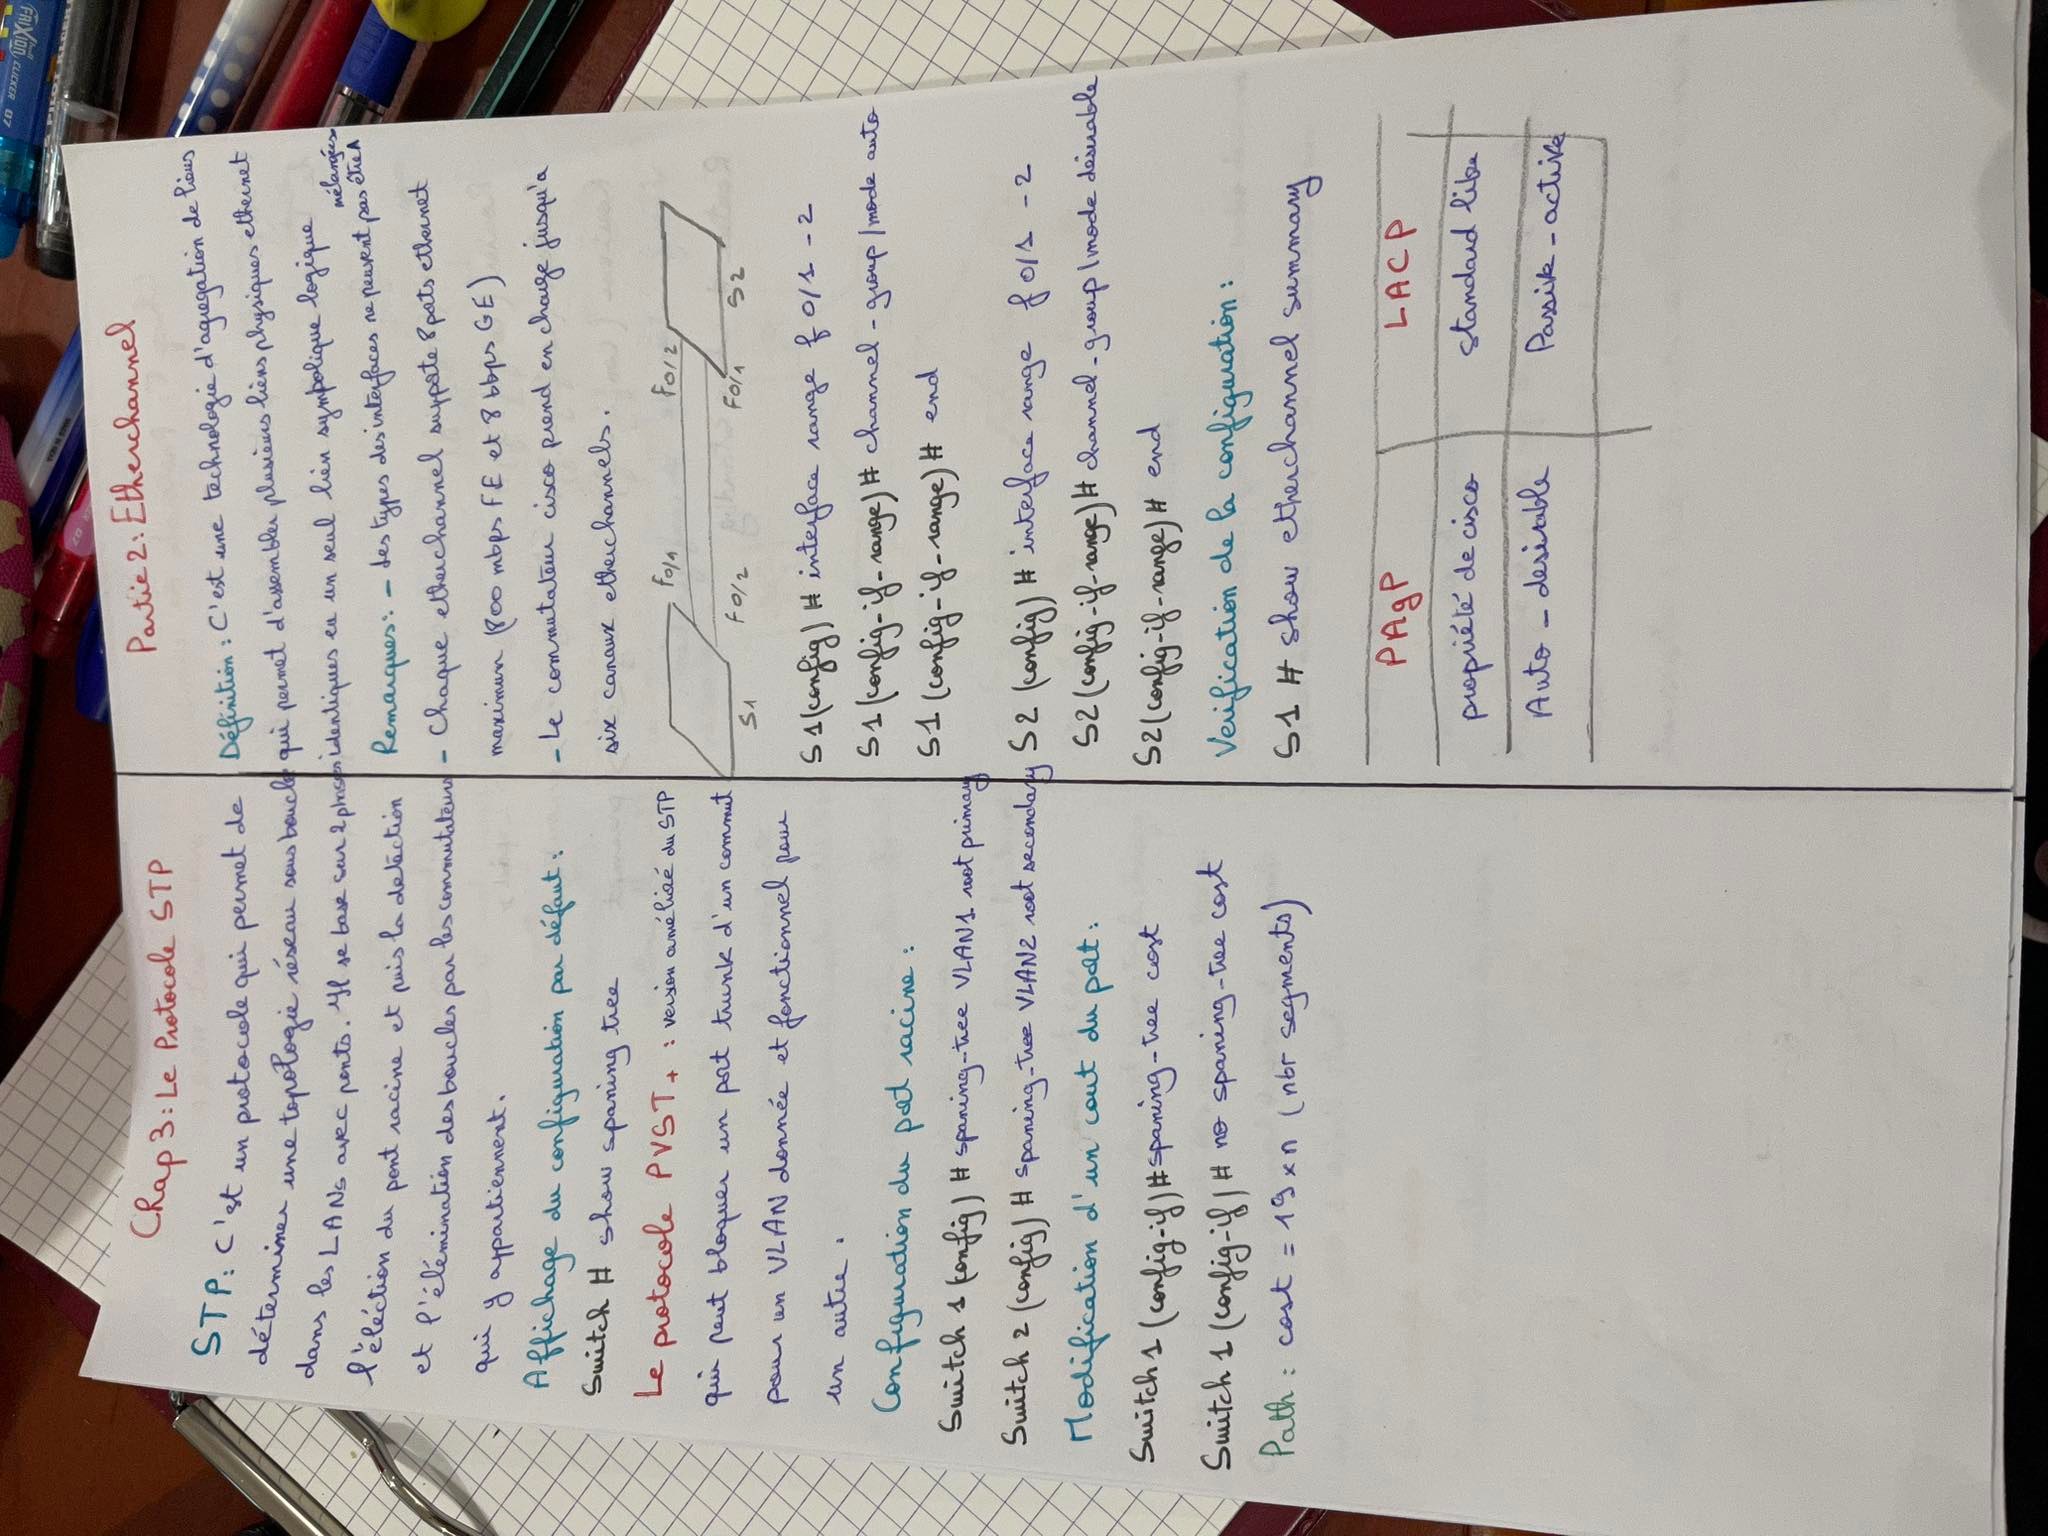 Chap 3: Le Protocole STP
STP: C'est un protocole qui permet de
déterminer une topologie réseau sans boucle
dans les LANs avec ponts. Il se base sur 2 phases
l'éléction du pont racine et puis la détection
et l'élémination des boucles par les commutateurs
qui y appartiennent.
Affichage du configuration par défaut:
Switch # show spaning tree
Le protocole PVST+ : version améliéé du STP
qui peut bloquer un port trunk d'un commut
pour un VLAN donnée et fonctionnel pour
un autre.
Configuration du pot racine:
Switch 1 (config) # spaning-tree VLAN1 root primary
Switch 2 (config) # spaning-tree VLAN2 root secondary
Modification d'un cout du pot:
Switch 1 (config-if) # spaning-tree cost
Switch 1 (config-if) # no spaning-tree cost
Path: cost = 19 x n (nbr segments)
Partie 2: Etherchannel
Définition: C'est une technologie d'agregation de liens
qui permet d'assembler plusieurs liens physiques ethernet
identiques en un seul lien symbolique logique
Remarques: - Les types des interfaces ne peuvent pas être mélangées
- Chaque etherchannel suppote 8 pots ethernet
maximum (800 mbps FE et 8 bbps GE)
- Le commutateur cisco prend en charge jusqu'a
six canaux etherchannels.
F0/1 F0/2
F0/2 F0/1
S1 S2
S1(config) # interface range f 0/1 - 2
S1 (config-if-range) # channel-group 1 mode auto
S1 (config-if-range) # end
S2 (config) # interface range f 0/1 - 2
S2 (config-if-range) # channel-group 1 mode désirable
S2(config-if-range) # end
Verification de la configuration:
S1 # show etherchannel summary
PAgP LACP
propriété de cisco standard libre
Auto - désirable Passive - active
FRIXION CLICKER 07